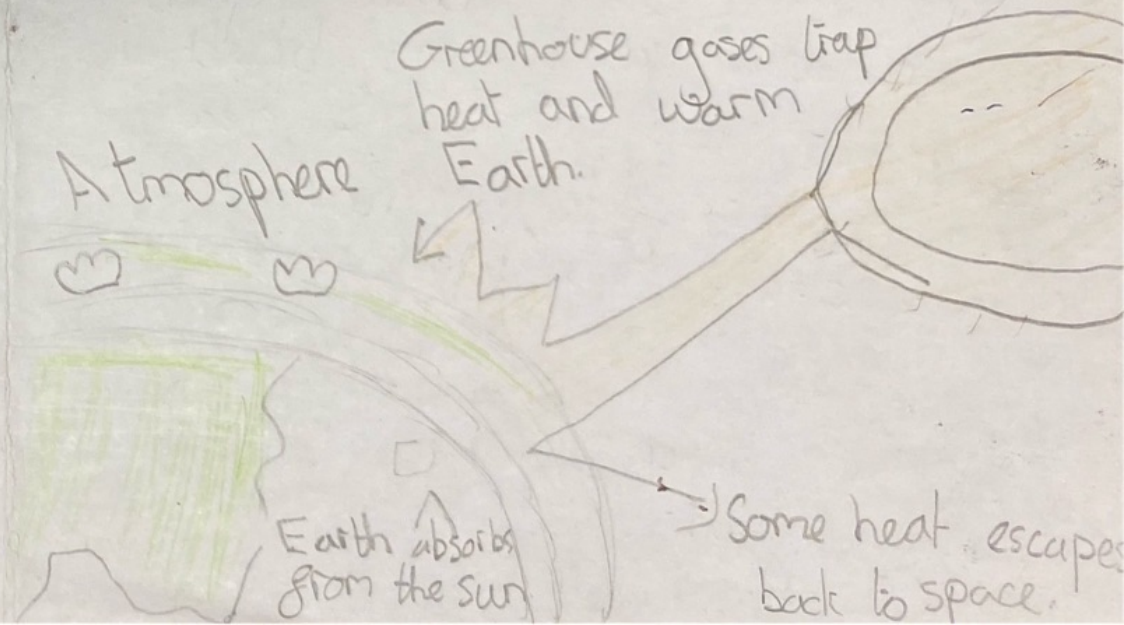 Greenhouse gases trap
heat and warm
Earth.
Atmosphere
Earth absorbs
from the sun
Some heat escapes
back to space.